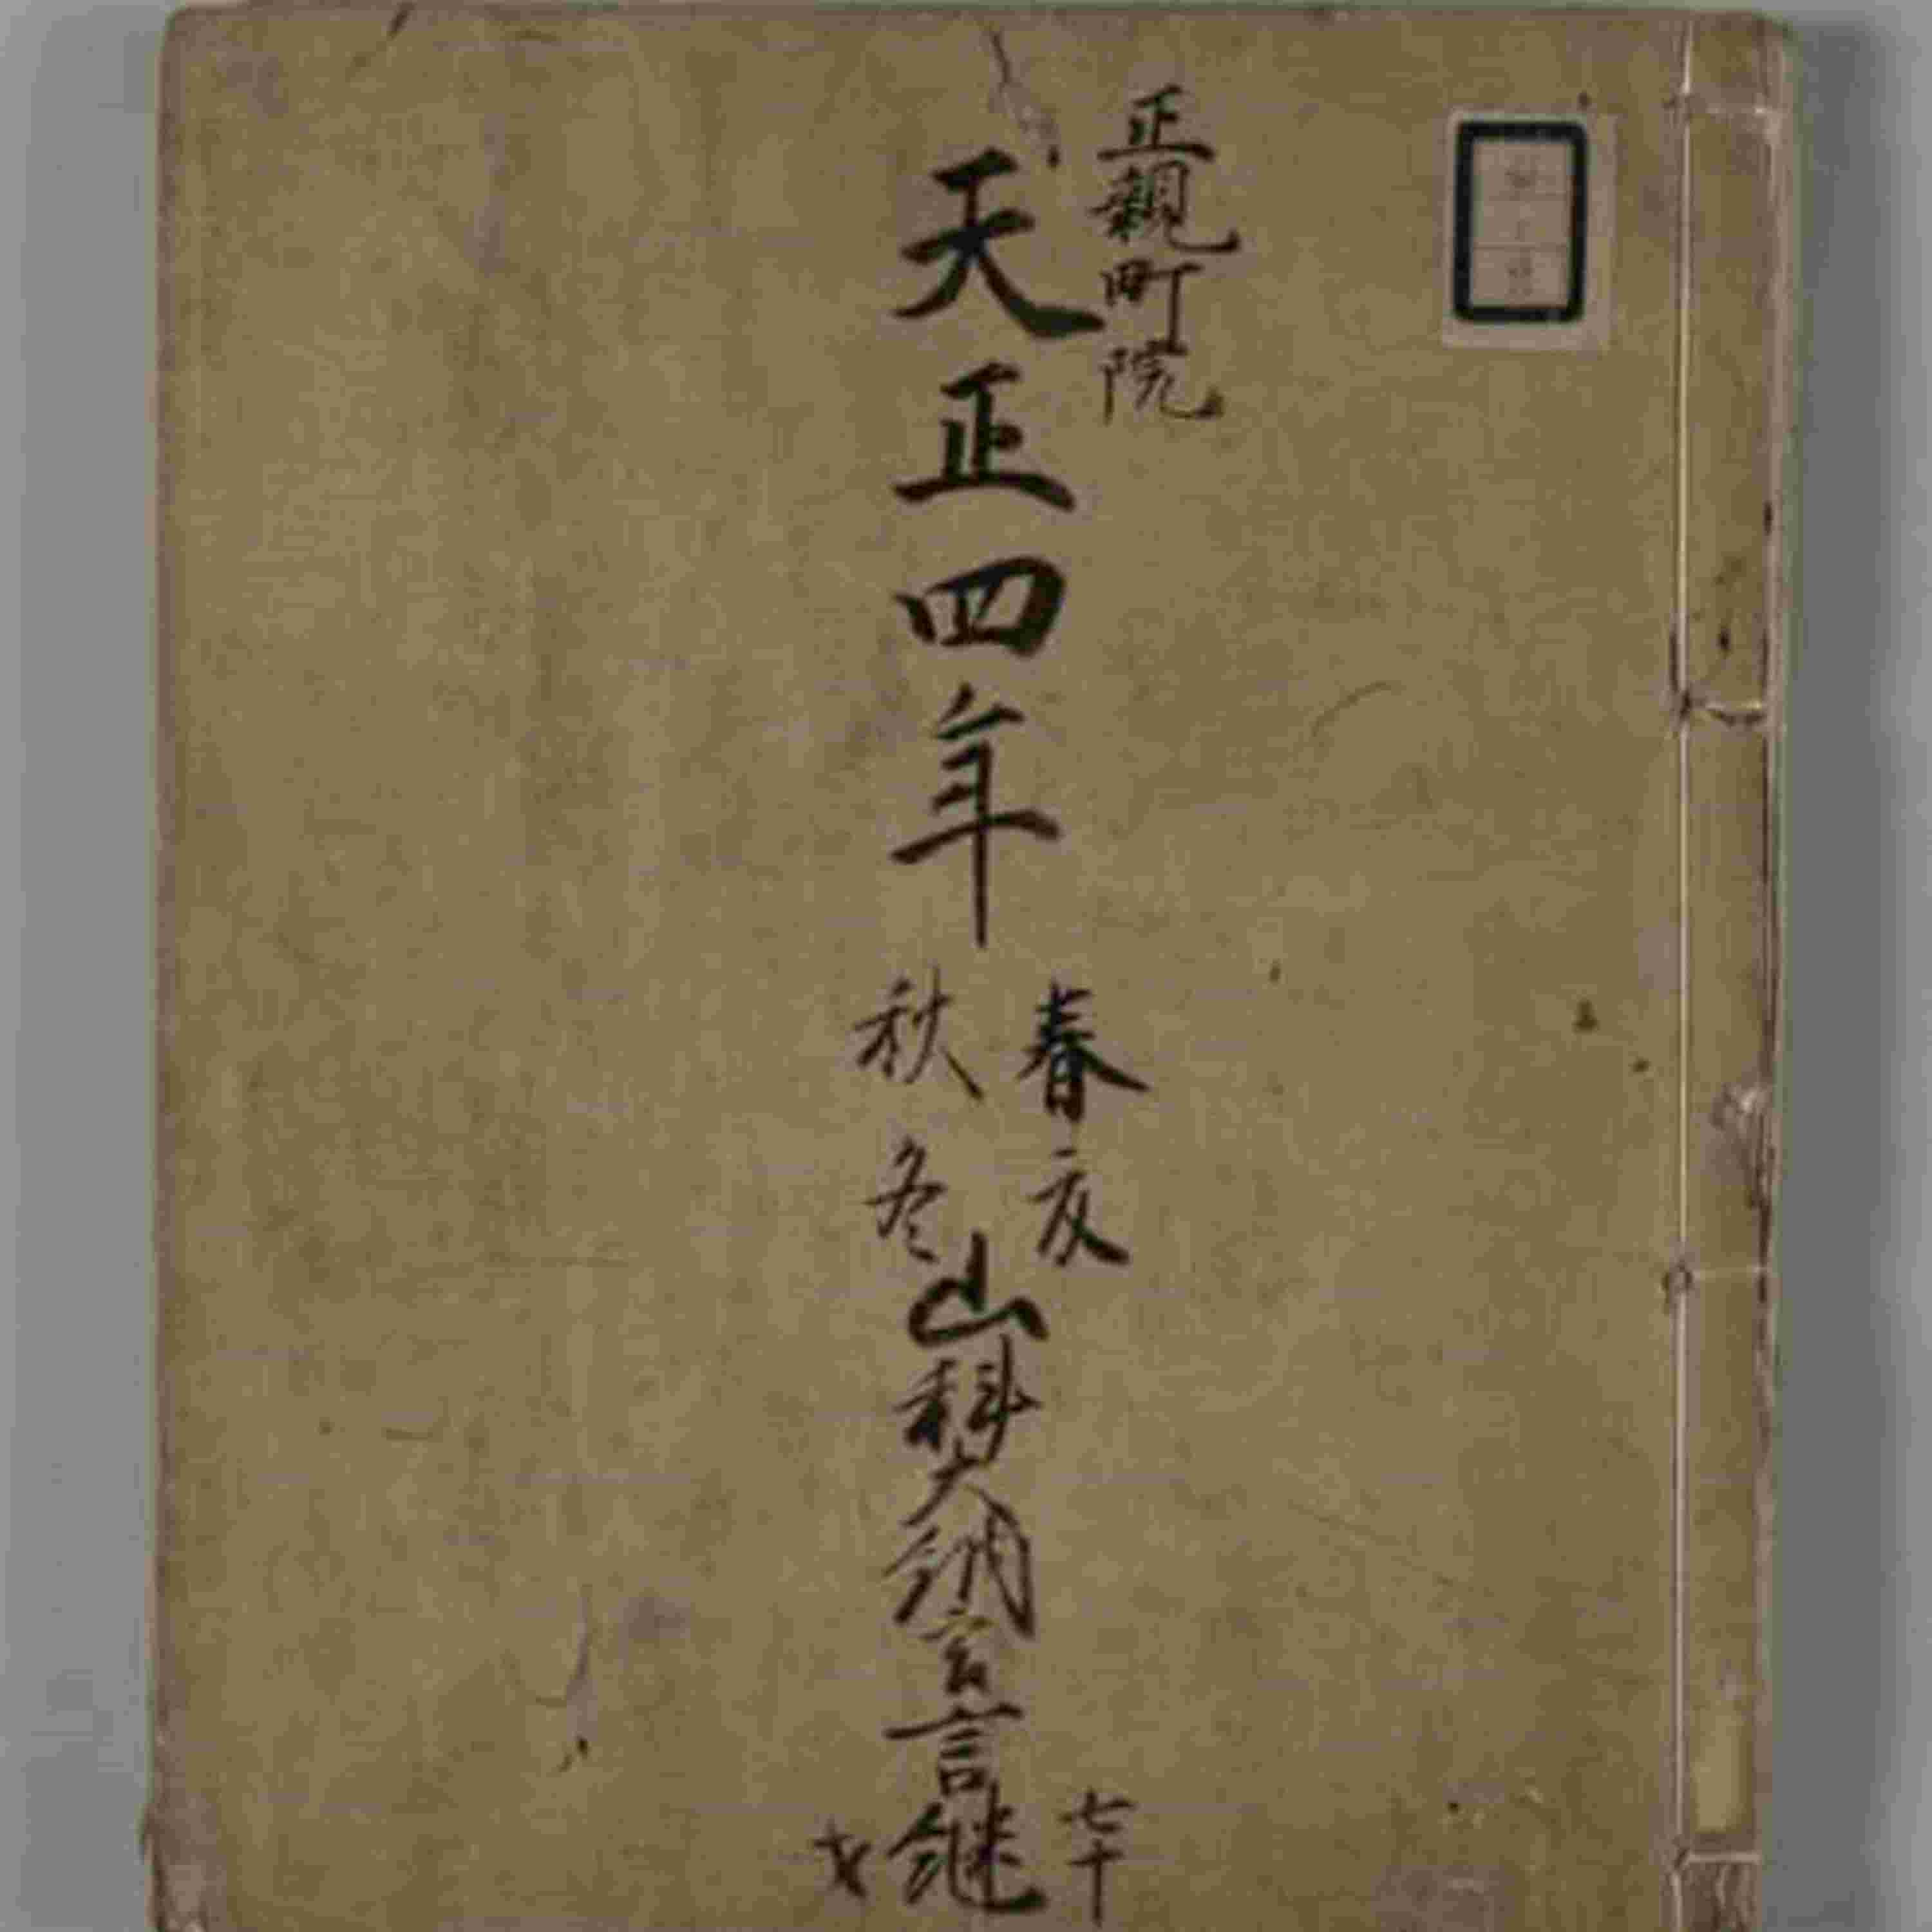 正親町院
天正四年
春夏
秋冬
山科大納言言継
七十
才